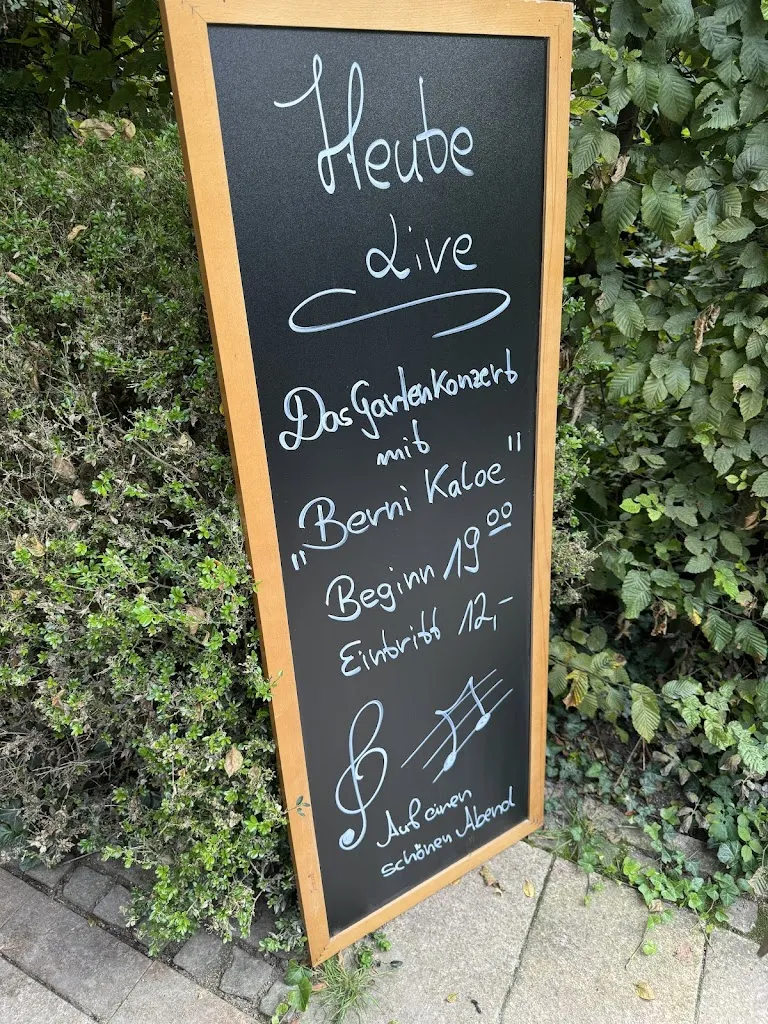 Heute
Live
Das Gartenkonzert
mit
"Berni Kaloe"
Beginn 19 00
Eintritt 12,-
Auf einen
schönen Abend